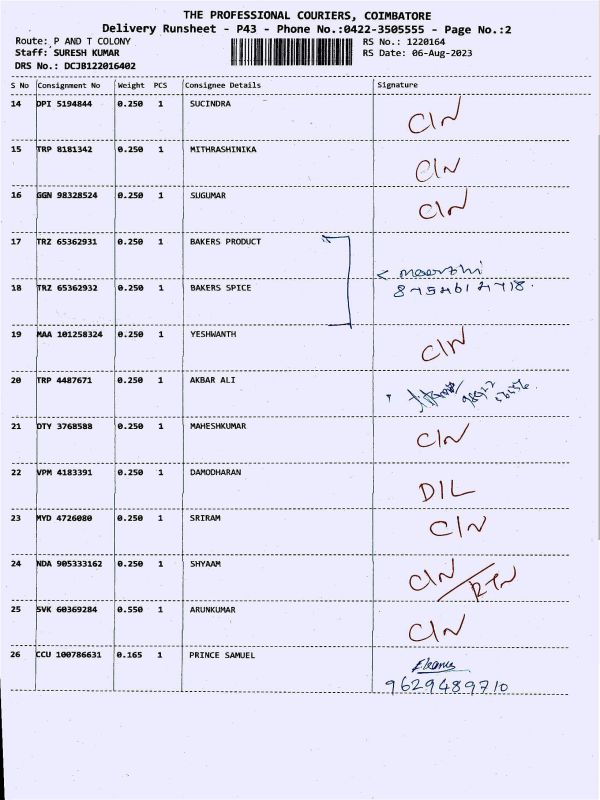 THE PROFESSIONAL COURIERS, COIMBATORE
Delivery Runsheet - P43 - Phone No.:0422-3505555 - Page No.:2
Route: P AND T COLONY RS No.: 1220164
Staff: SURESH KUMAR RS Date: 06-Aug-2023
DRS No.: DCJB122016402
S No Consignment No Weight PCS Consignee Details Signature
14 DPI 5194844 0.250 1 SUCINDRA CIN
15 TRP 8181342 0.250 1 MITHRASHINIKA CIN
16 GGN 98328524 0.250 1 SUGUMAR CIN
17 TRZ 65362931 0.250 1 BAKERS PRODUCT
18 TRZ 65362932 0.250 1 BAKERS SPICE
19 MAA 101258324 0.250 1 YESHWANTH CIN
20 TRP 4487671 0.250 1 AKBAR ALI
21 DTY 3768588 0.250 1 MAHESHKUMAR CIN
22 VPM 4183391 0.250 1 DAMODHARAN DIL
23 MYD 4726080 0.250 1 SRIRAM CIN
24 NDA 905333162 0.250 1 SHYAAM CIN/RTN
25 SVK 60369284 0.550 1 ARUNKUMAR CIN
26 CCU 100786631 0.165 1 PRINCE SAMUEL
9629489710